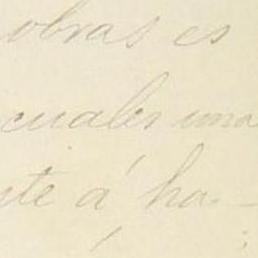 obras es
cuales una
te á ha-